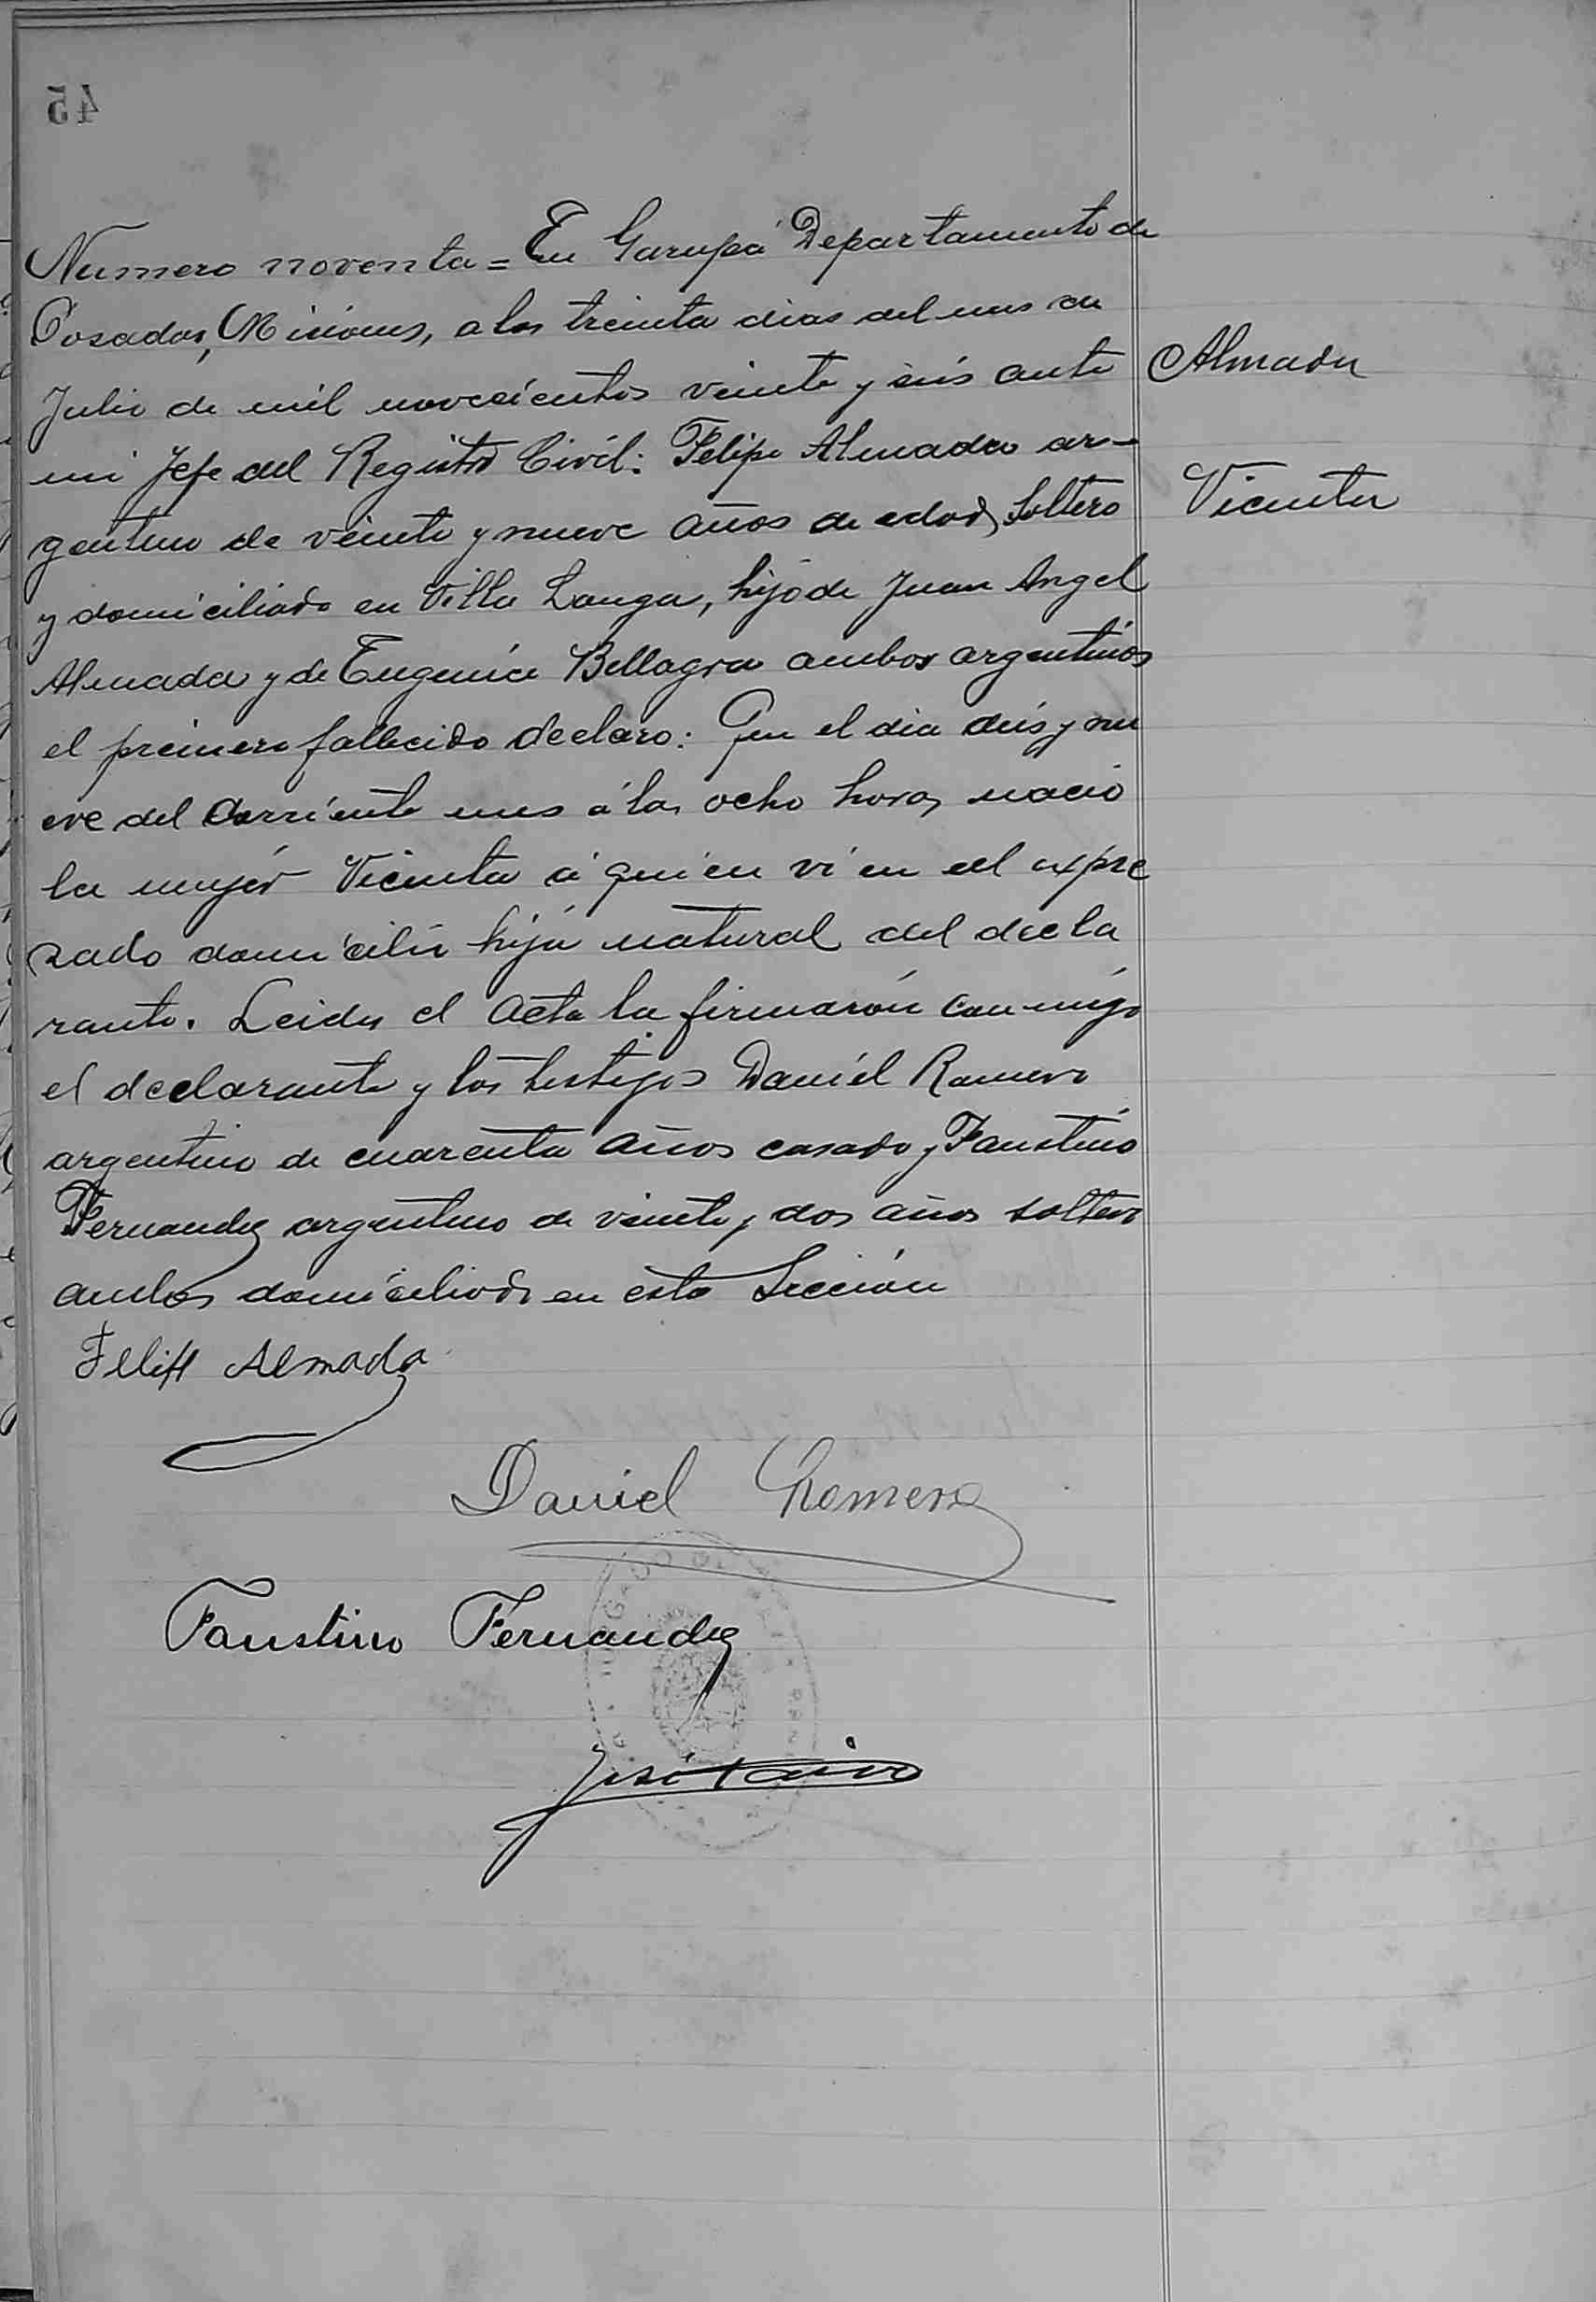 45
Numero noventa = En Garupá Departamento de
Posadas, Misiones, a los treinta dias del mes de
Julio de mil novecientos veinte y seis ante
mi Jefe del Registro Civil: Felipe Almada ar-
gentino de veinte y nueve años de edad, Soltero
y domiciliado en Villa Longa, hijo de Juan Angel
Almada y de Eugenia Bellagra ambos argentinos
el primero fallecido declaro: Que el dia diis y nu
eve del Corriente mes á las ocho horas nació
la mujér Vicenta á quien ví en el expre
zado domicilio hija natural del decla
rante. Leida el Acta la firmarón con-migo
el declarante y los testigos Daniél Romero
argentino de cuarenta años casado y Faustino
Fernandez argentino de veinte y dos años soltero
ambos domiciliados en esta Sección
Almada
Vicenta
Felipe Almada
Daniel Romero
Faustino Fernandez
José